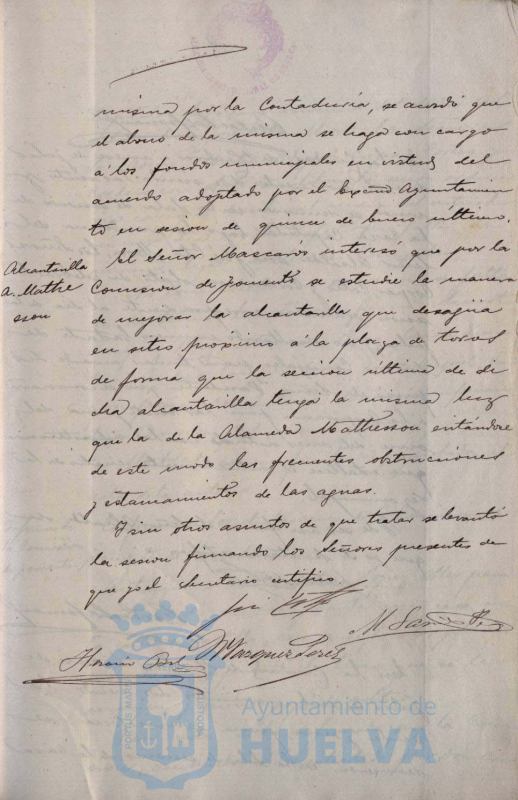 misma por la Contaduría, se acordó que
el abono de la misma se haga con cargo
á los fondos municipales en virtud del
acuerdo adoptado por el Excmo Ayuntamien
to en sesion de quince de Enero último.
El Señor Mascarós interesó que por la
Alcantarilla
A. Mathe
sson
Comision de fomento se estudie la manera
de mejorar la alcantarilla que desagüa
en sitio próximo á la plaza de toros
de forma que la seccion última de di
cha alcantarilla tenga la misma luz
que la de la Alameda Mathesson evitándose
de este modo las frecuentes obstrucciones
y estancamientos de las aguas.
Y sin otros asuntos de que tratar se levantó
la sesion firmando los Señores presentes de
que yo el Secretario certifico.
M.
Marquez Perez
PORTUS MARIS
CUSTODIA
Ayuntamiento de
HUELVA